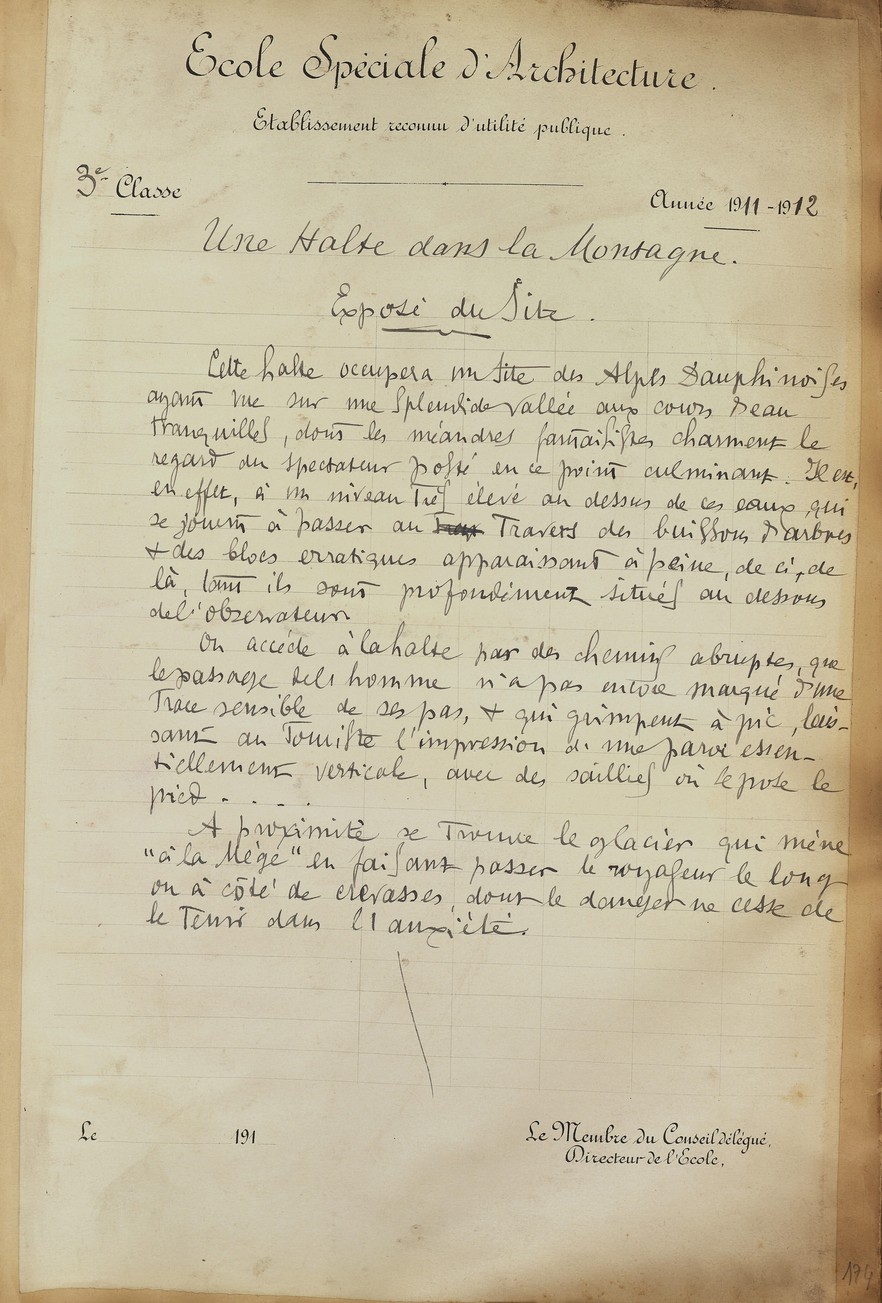 Ecole Spéciale d'Architecture.
Etablissement reconnu d'utilité publique.
3e Classe
Année 1911-1912
Une Halte dans la Montagne.
Exposé du Site.
Cette halte occupera un site des Alpes Dauphinoises
ayant vue sur une splendide vallée aux cours d'eau
tranquilles, dont les méandres fantaisistes charment le
regard du spectateur posté en ce point culminant. Il est,
en effet, à un niveau très élevé au dessus de ces eaux qui
se jouent à passer au Travers des buissons d'arbres
& des blocs erratiques apparaissant à peine, de ci, de
là, tant ils sont profondément situés au dessous
de l'observateur
On accède à la halte par des chemins abruptes, que
le passage de l'homme n'a pas encore marqué d'une
Trace sensible de ses pas, & qui grimpent à pic, lais-
sant au Touriste l'impression d'une paroi essen-
tiellement verticale, avec des saillies où se pose le
pied . . . .
A proximité se Trouve le glacier qui mène
"à la Mège" en faisant passer le voyageur le long
ou à côté de crevasses, dont le danger ne cesse de
le Tenir dans l'anxiété.
Le 191
Le Membre du Conseil délégué,
Directeur de l'Ecole,
174